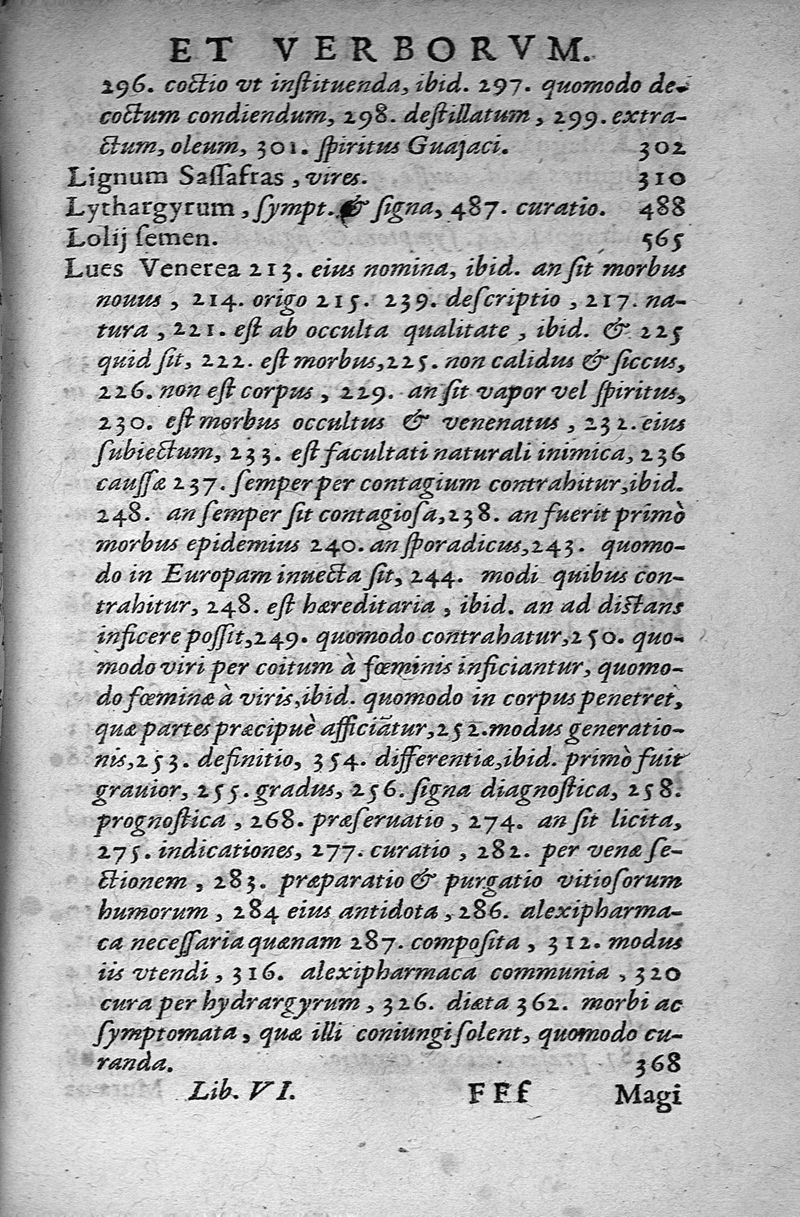 ET VERBORVM.
296. coctio vt inſtituenda, ibid. 297. quomodo de-
coctum condiendum, 298. deſtillatum, 299. extra-
ctum, oleum, 301. ſpiritus Guajaci. 302
Lignum Saſſafras, vires. 310
Lythargyrum, ſympt. & ſigna, 487. curatio. 488
Lolij ſemen. 565
Lues Venerea 213. eius nomina, ibid. an ſit morbus
nouus, 214. origo 215. 239. deſcriptio, 217. na-
tura, 221. eſt ab occulta qualitate, ibid. & 225
quid ſit, 222. eſt morbus, 225. non calidus & ſiccus,
226. non eſt corpus, 229. an ſit vapor vel ſpiritus,
230. eſt morbus occultus & venenatus, 232. eius
ſubiectum, 233. eſt facultati naturali inimica, 236
cauſſæ 237. ſemper per contagium contrahitur, ibid.
248. an ſemper ſit contagioſa, 238. an fuerit primò
morbus epidemius 240. an ſporadicus, 243. quomo-
do in Europam inuecta ſit, 244. modi quibus con-
trahitur, 248. eſt hæreditaria, ibid. an ad diſtans
inficere poſſit, 249. quomodo contrahatur, 250. quo-
modo viri per coitum à fœminis inficiantur, quomo-
do fœminæ à viris, ibid. quomodo in corpus penetret,
quæ partes præcipuè afficiãtur, 252. modus generatio-
nis, 253. definitio, 354. differentiæ, ibid. primò fuit
grauior, 255. gradus, 256. ſigna diagnoſtica, 258.
prognoſtica, 268. præſeruatio, 274. an ſit licita,
275. indicationes, 277. curatio, 282. per venæ ſe-
ctionem, 283. præparatio & purgatio vitioſorum
humorum, 284 eius antidota, 286. alexipharma-
ca neceſſaria quænam 287. compoſita, 312. modus
iis vtendi, 316. alexipharmaca communia, 320
cura per hydrargyrum, 326. diæta 362. morbi ac
ſymptomata, quæ illi coniungi ſolent, quomodo cu-
randa. 368
Lib. VI. FFf Magi